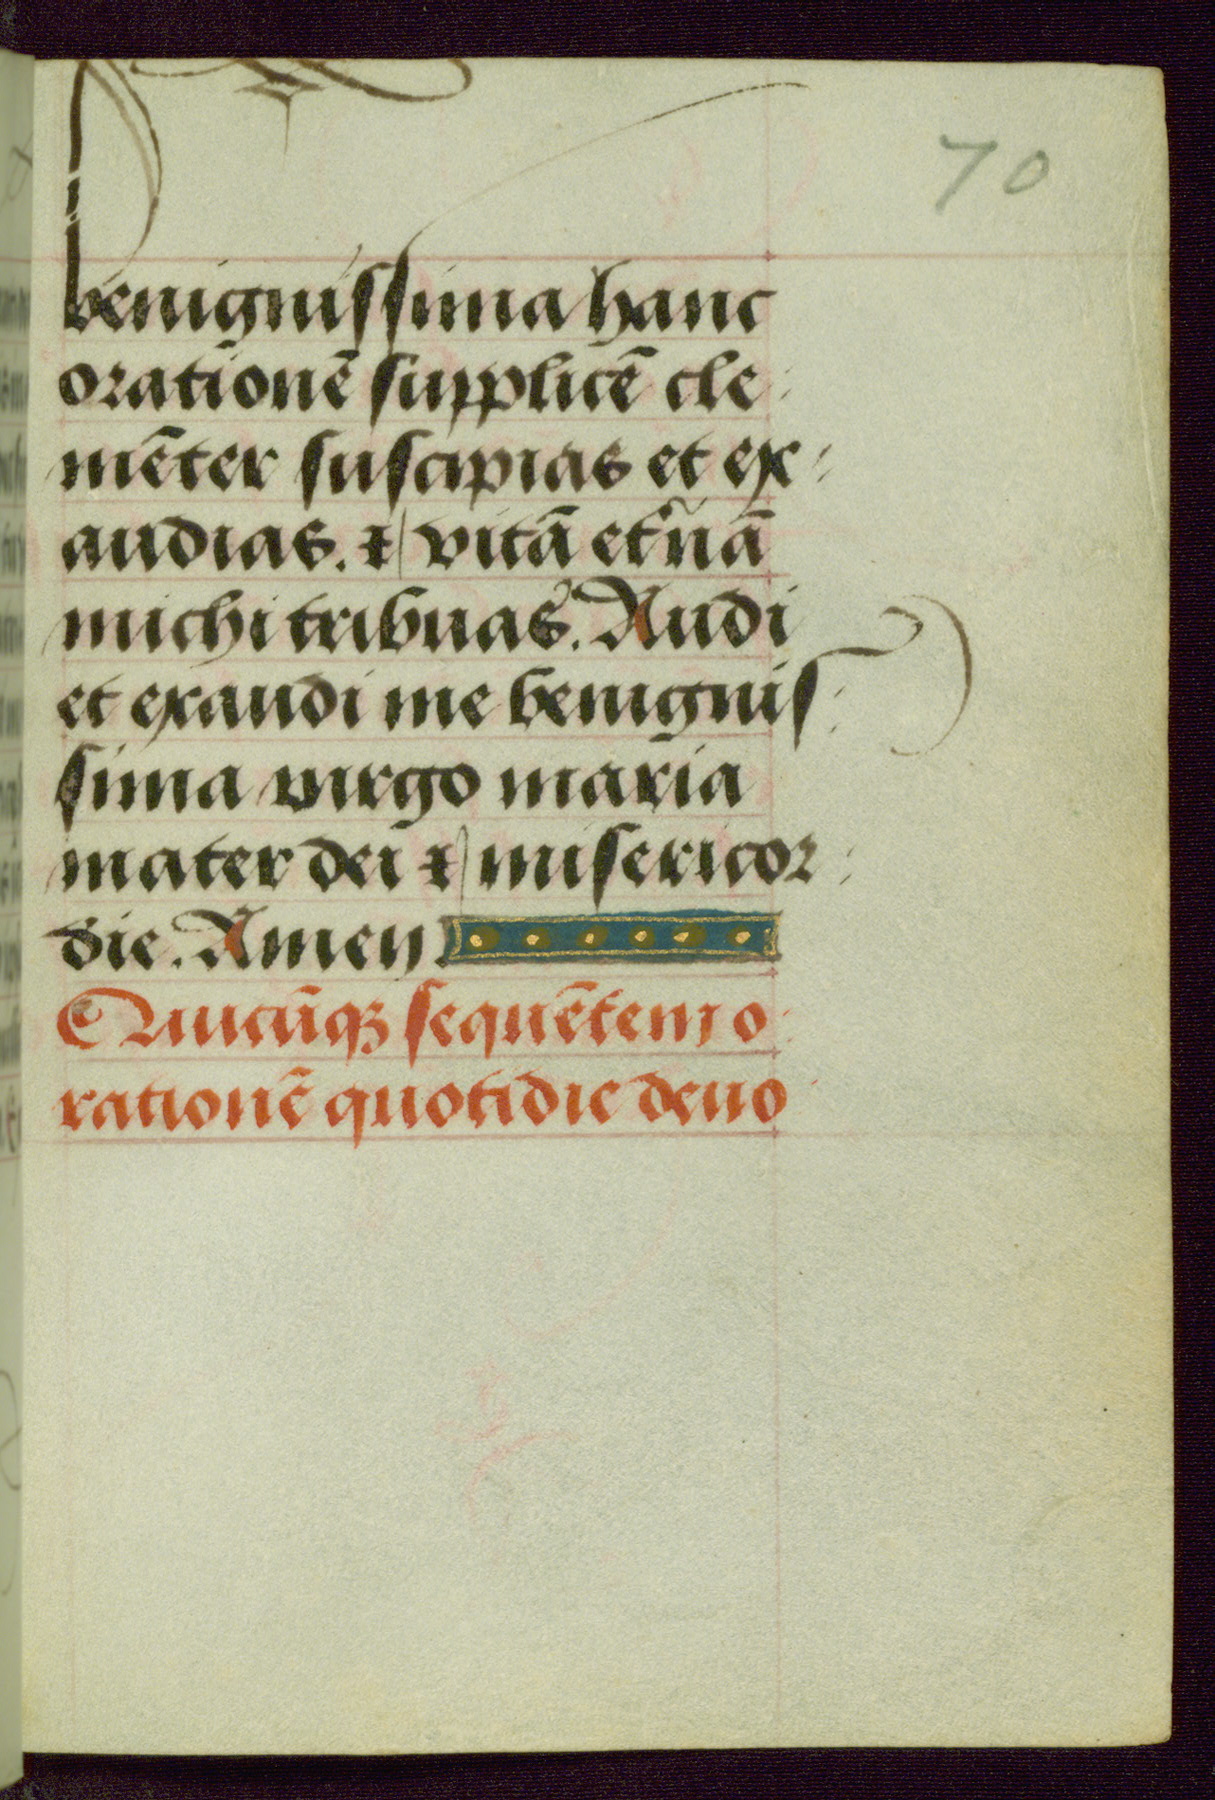 70
benignissima hanc
orationē supplicē cle
mēter suscipias et ex
audias. & vitā et̃nā
michi tribuas. Audi
et exaudi me benignis
sima virgo maria
mater dei & misericor
die. Amen.
Quicūqꝫ sequētem o
rationē quotidie deuo